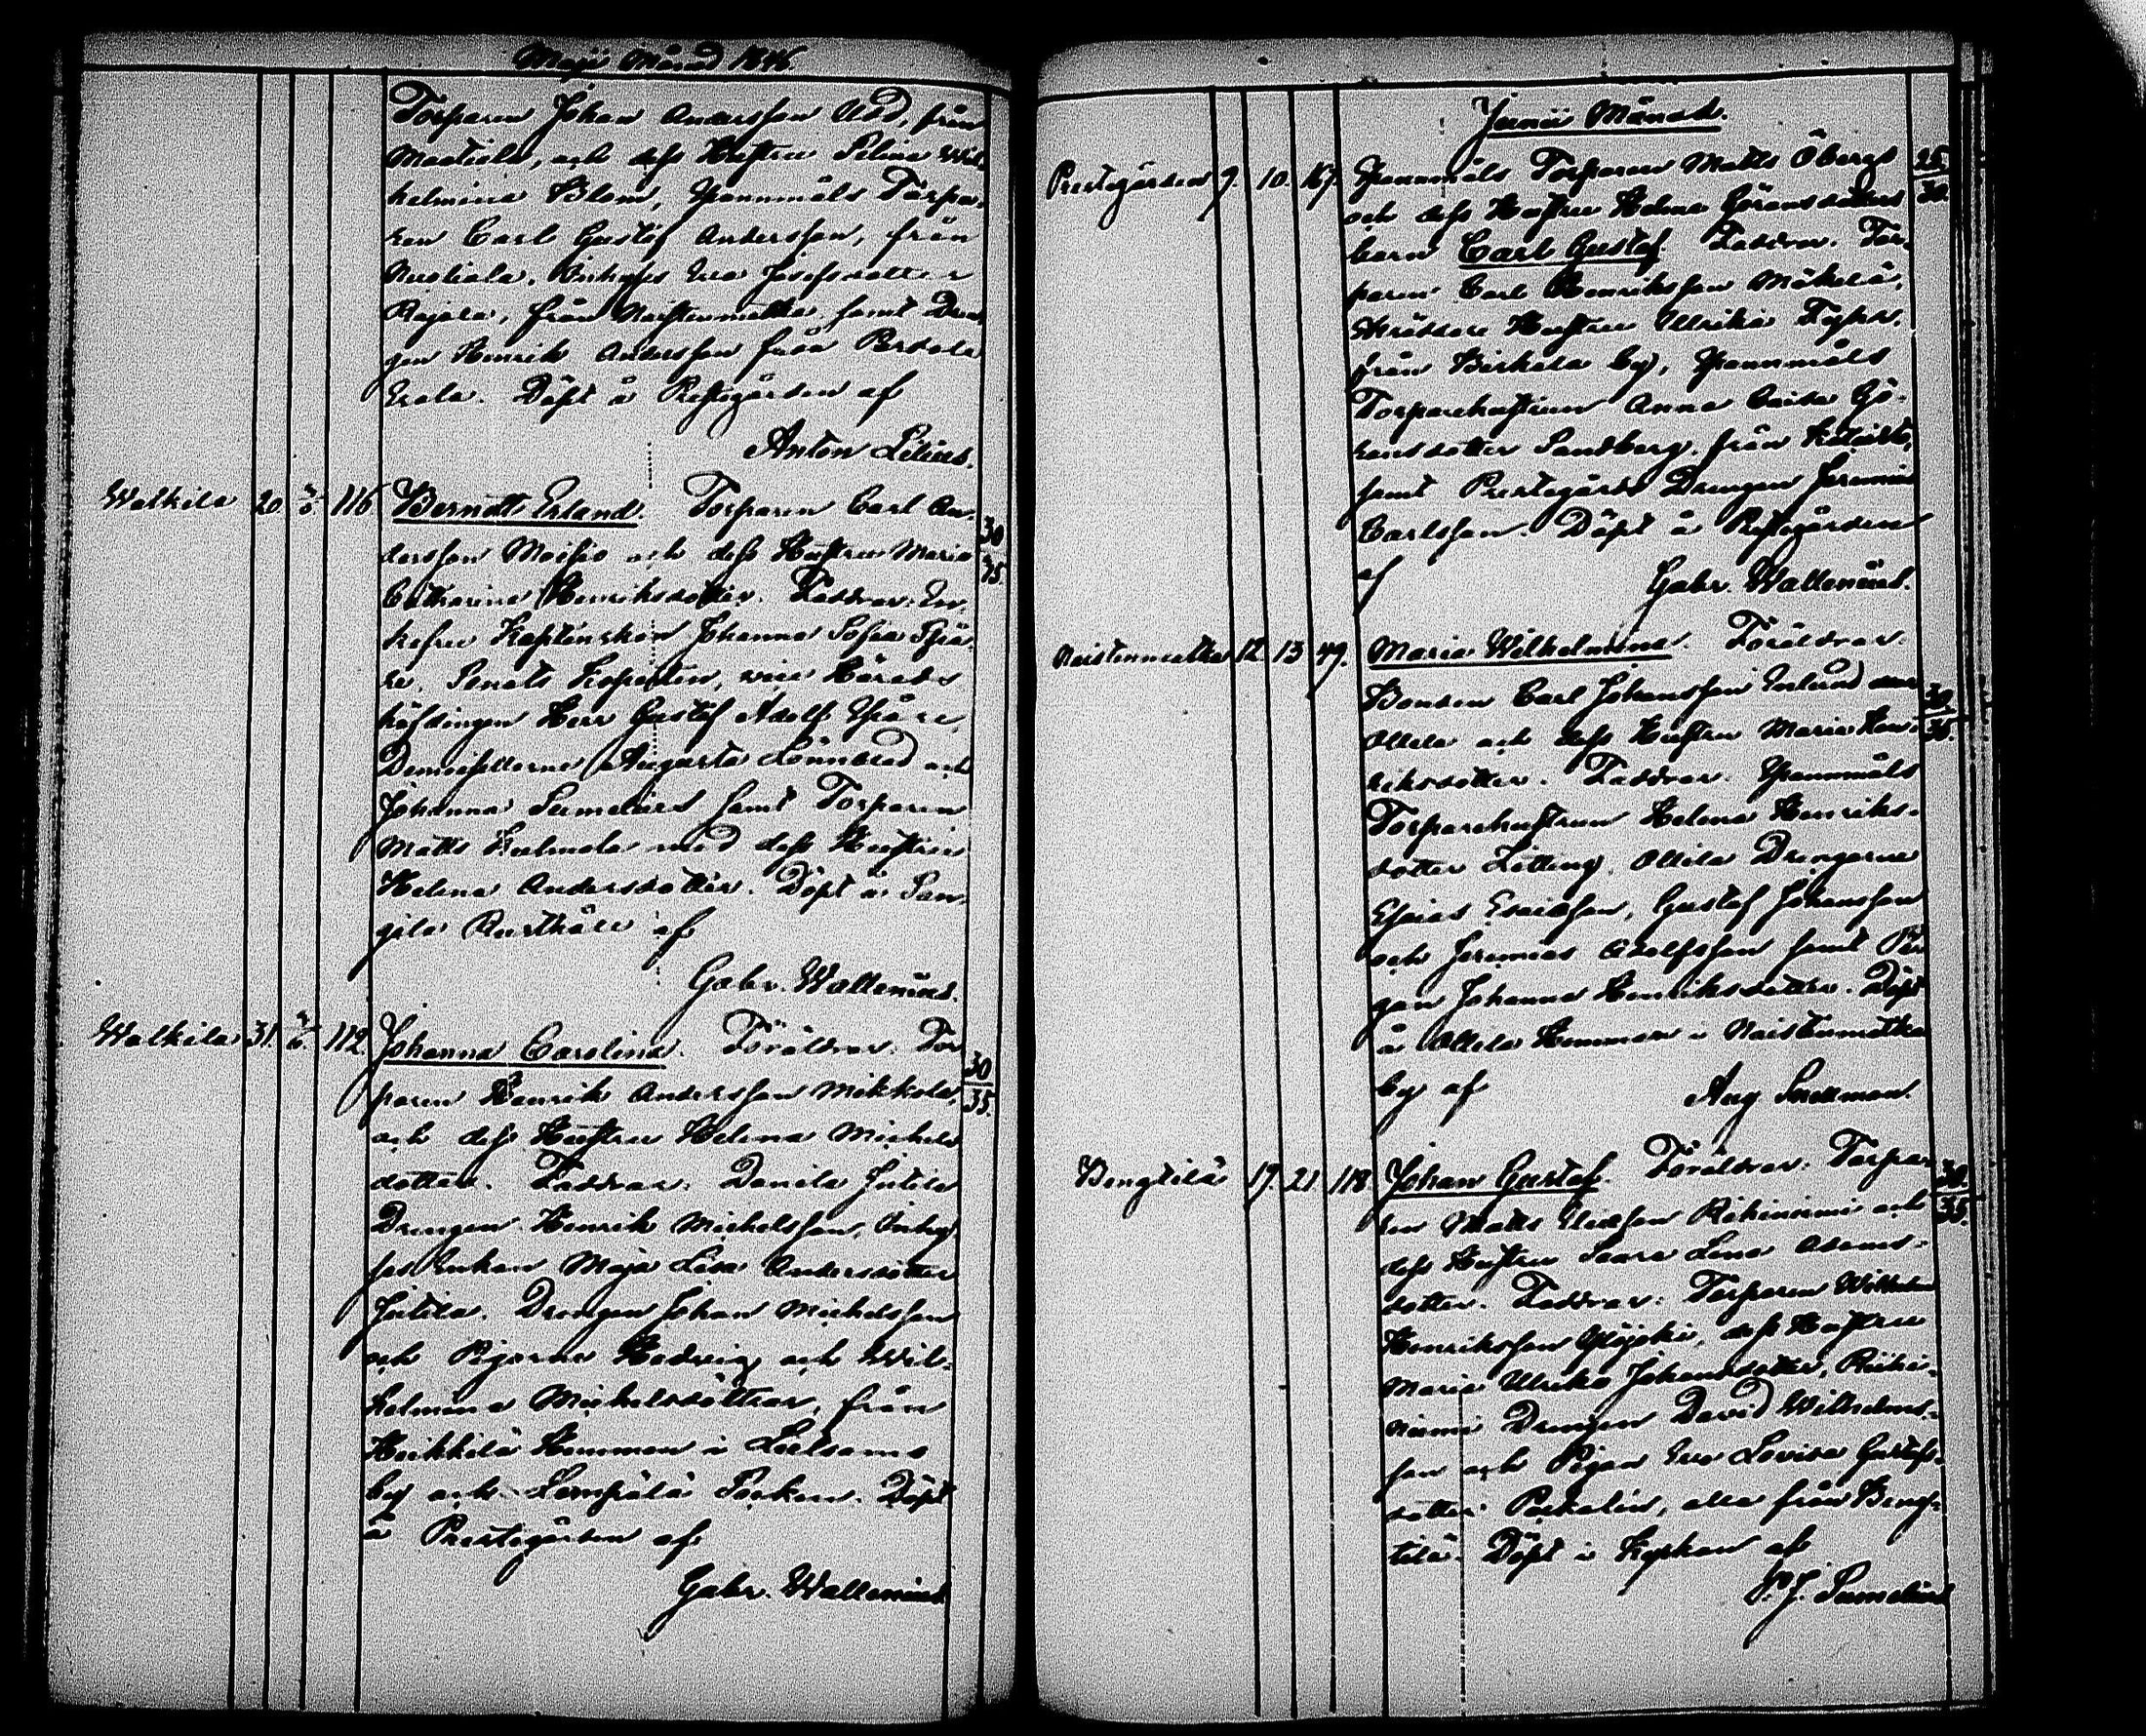 Maji Månad 1846
Torparen Johan Andersson Udd, från
Maatiala, och dess Hustru Selina Wil-
helmina Blom, Spannmåls Torpa-
ren Carl Gustaf Andersson, från
Nuoliala, Inhyses Eva Josefsdotter
Rajala, från Naistenmatka samt Dren-
gen Henrik Andersson från Perdola
Erola. Döpt å Prestegården af
Anton Lilius.
Walkila 20 2/6 116 Berndt Erland. Torparen Carl An-
dersson Moisio och dess Hustru Maria 30/35
Catharina Henriksdotter. Faddrar: En-
kefru Kaptenskan Johanna Sofia Spå-
re, Senats Kopisten, vice Härads
höfdingen Herr Gustaf Adolf Spåre,
Demoisellerne Augusta Lönnblad och
Johanna Sumelius samt Torparen
Matts Kulmala med dess Hustru
Helena Andersdotter. Döpt å San-
gila Rusthåll af
Gabr. Wallenius.
Walkila 31. 2/6. 112. Johanna Carolina. Föräldrar: Tor
paren Henrik Andersson Mikkola, 30/35.
och dess Hustru Helena Michels
dotter. Faddrar: Danila Jutila
Drengen Henrik Michelsson, Inhy
ses Enkan Maja Lisa Andersdotter
Jutila. Drengen Johan Michelsson
och Pigorne Hedvig och Wil-
helmina Michelsdöttrar, från
Heikkilä Hemman i
by och Lempälä Socken. Döpt
å Prestegården af
Gabr. Wallenius
Junii Månad.
Prestegården 9. 10. 167. Spannmåls Torparen Matts Öbergs 25/30.
och dess Hustru Helena Göransdotters
barn Carl Gustaf. Faddrar. Tor-
paren Carl Henriksson Mäkelä,
Skräddare Hustrun Ullrika
från Birkala by, Spannmåls
Torparehustrun Anna Caisa Gö-
ransdotter Sandberg, från
samt Prestegårds Drengen Jeremias
Carlsson. Döpt å Prestegården
af Gabr. Wallenius.
Naistenmatka 12. 13 49. Maria Wilhelmina. Föräldrar.
Bonden Carl Johansson Enlund
Ollila och dess Hustru Maria Hen- 30/35.
riksdotter. Faddrar. Spannmåls
Torparehustrun Helena Henriks-
dotter Litting, Ollila Drengarne
Esaias Esaiasson, Gustaf Johansson
och Jeremias Adolfsson samt Pi-
gan Johanna Henriksdotter. Döpt
å Ollila Hemman i Naistenmatka
by af Aug
Bengtilä 17. 21 118 Johan Gustaf. Föräldrar: Torpar 30/35.
en Matts Eliasson Rihiniemi och
dess Hustru Saara Lena Adams-
dotter. Faddrar: Torparen Wilhelm
Henriksson Ylöjoki, dess Hustru
Maria Ulrika Johansdotter, Riihi-
niemi Drengen David Wilhelms-
son och Pigan Eva Lovisa Gustafs-
dotter, alla från Beng-
tilä. Döpt i Kyrkan af
F. J. Sumelius